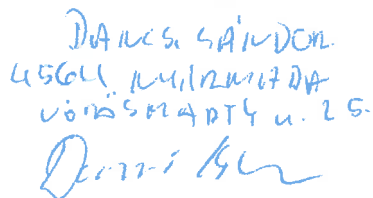 DANCS SÁNDOR
4564 NYÍRMADA
VÖRÖSMARTY u. 25.